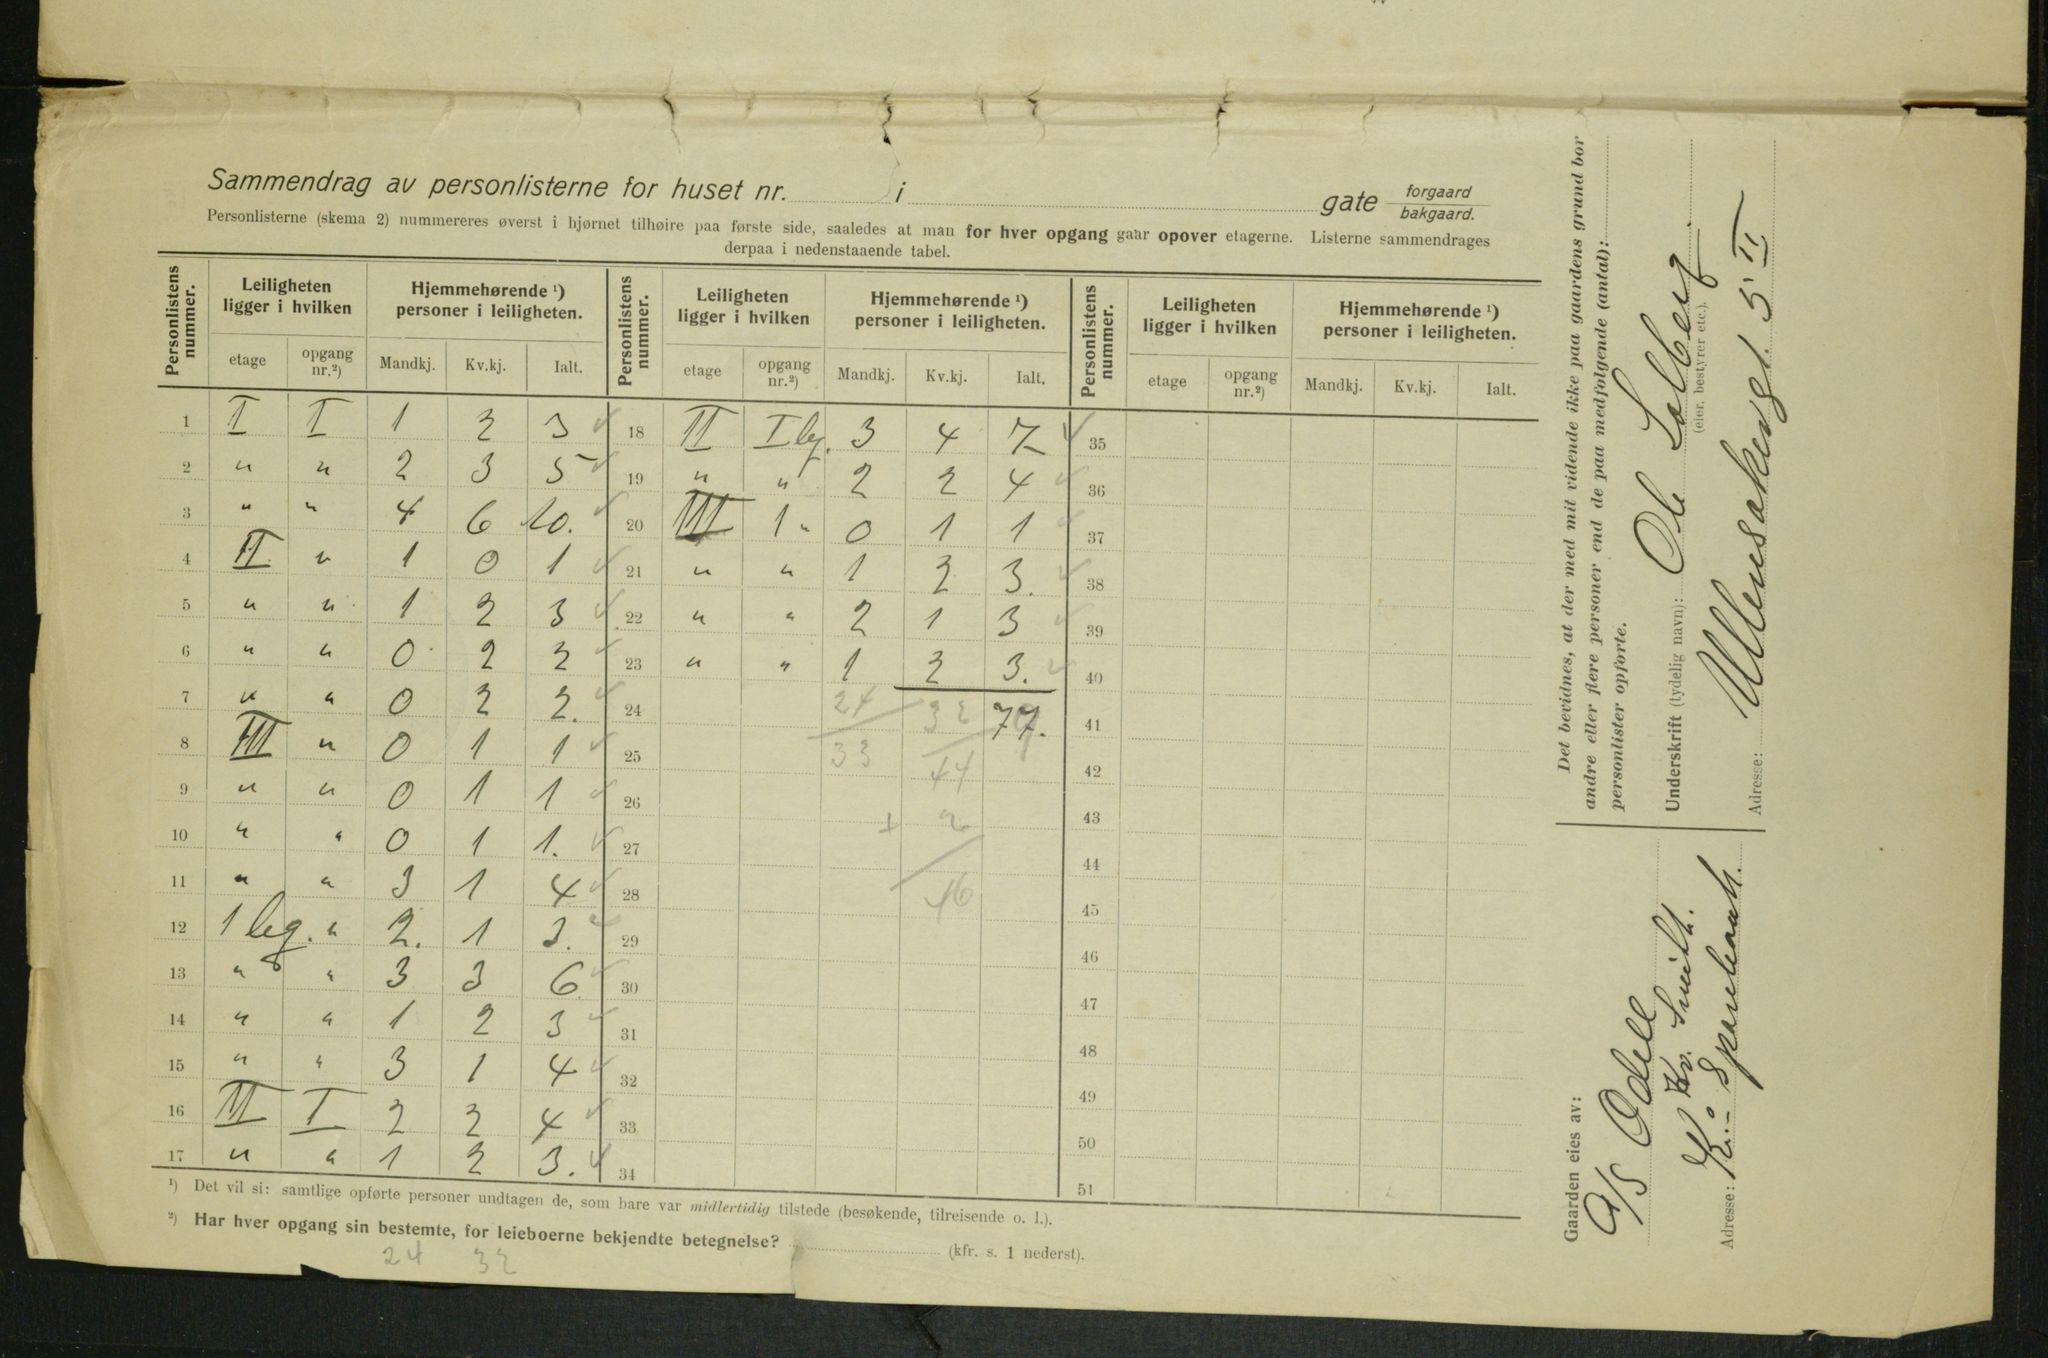 Sammendrag av personlisterne for huset nr. i gate forgaard bakgaard.
Personlisterne (skema 2) nummereres øverst i hjørnet tilhøire paa første side, saaledes at man for hver opgang gaar opover etagerne. Listerne sammendrages
derpaa i nedenstaaende tabel.
Personlistens nummer. Leiligheten ligger i hvilken Hjemmehørende ¹) personer i leiligheten. Personlistens nummer. Leiligheten ligger i hvilken Hjemmehørende ¹) personer i leiligheten. Personlistens nummer. Leiligheten ligger i hvilken Hjemmehørende ¹) personer i leiligheten.
etage opgang nr.²) Mandkj. Kv.kj. Ialt. etage opgang nr.²) Mandkj. Kv.kj. Ialt. etage opgang nr.²) Mandkj. Kv.kj. Ialt.
1 I I 1 2 3 18 II I leg. 3 4 7 35
2 " " 2 3 5 19 " " 2 2 4 36
3 " " 4 6 10. 20 III 1 " 0 1 1 37
4 II " 1 0 1 21 " " 1 2 3. 38
5 " " 1 2 3 22 " " 2 1 3 39
6 " " 0 2 2 23 " " 1 2 3. 40
7 " " 0 2 2. 24 24 32 77. 41
8 III " 0 1 1 25 33 44 42
9 " " 0 1 1 26 + 2 43
10 " " 0 1 1. 27 44
11 " " 3 1 4 28 46 45
12 1 leg. " 2. 1 3. 29 46
13 " " 3 3 6 30 47
14 " " 1 2 3 31 48
15 " " 3 1 4 32 49
16 II I 2 2 4 33 50
17 " " 1 2 3. 34 51
¹) Det vil si: samtlige opførte personer undtagen de, som bare var midlertidig tilstede (besøkende, tilreisende o. l.).
²) Har hver opgang sin bestemte, for leieboerne bekjendte betegnelse? (kfr. s. 1 nederst).
24 32
Det bevidnes, at der med mit vidende ikke paa gaardens grund bor
andre eller flere personer end de paa medfølgende (antal):
personlister opførte.
Underskrift (tydelig navn): Ole Solberg
(eier, bestyrer etc.).
Adresse: Ullensakergt. 5 II
Gaarden eies av:
A/S Odell
K. Kv. Smith.
Adresse: K.: Sparebank.